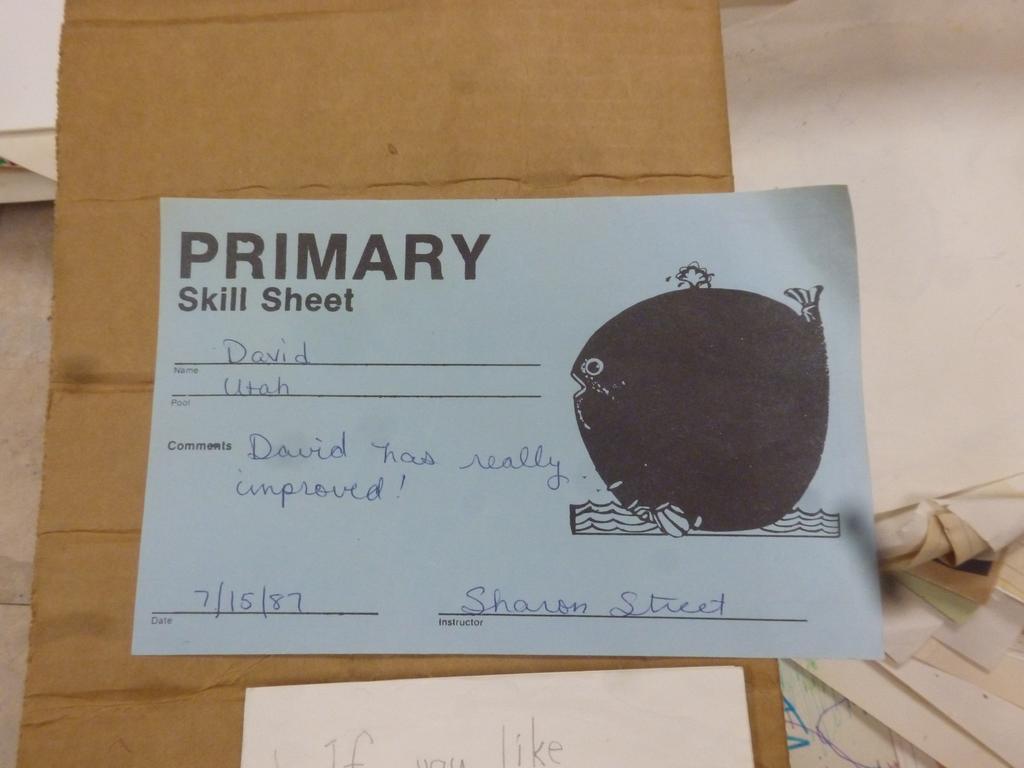 PRIMARY
Skill Sheet
David
Name
Utah
Pool
Comments David has really
improved!
7/15/87
Date
Sharon Street
Instructor
If you like